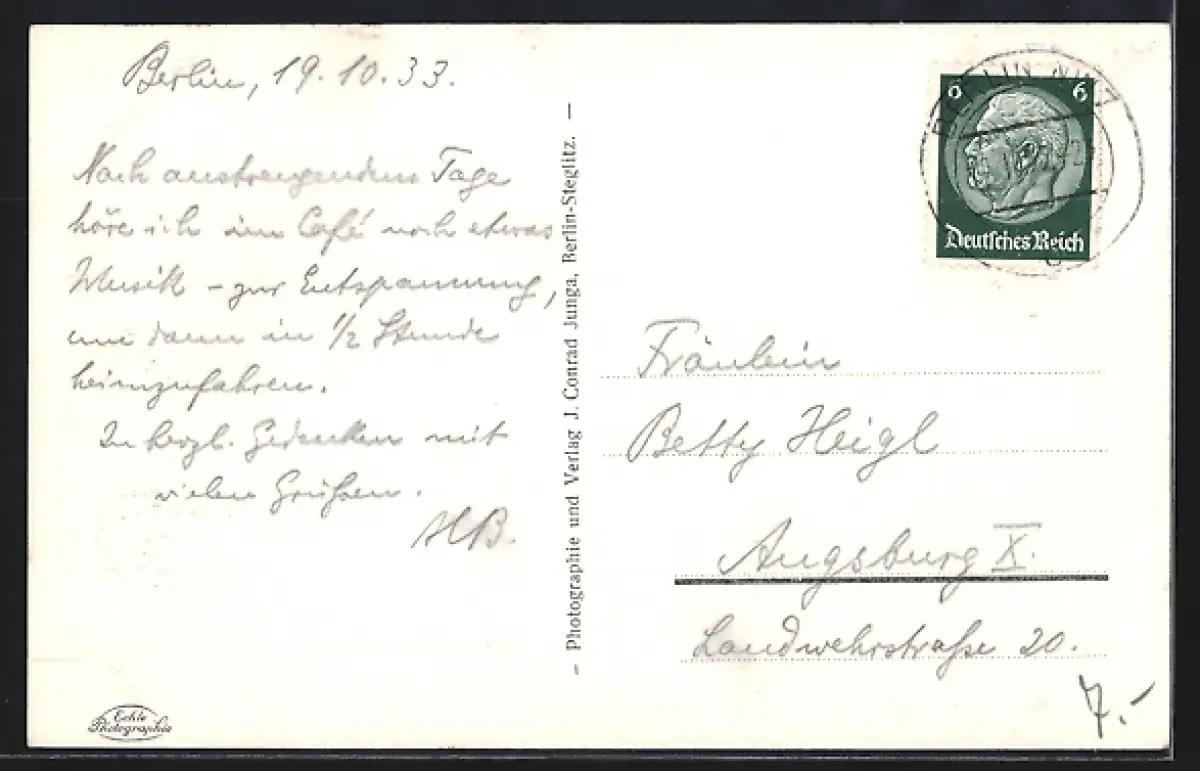 Berlin, 19.10.33.
Nach anstrengendem Tage
höre ich im Café noch etwas
Musik - zur Entspannung,
um dann in 1/2 Stunde
heimzufahren.
In herzl. Gedenken mit
vielen Grüßen.
HB.
Echte
Photographie
- Photographie und Verlag J. Conrad Junga, Berlin-Steglitz. -
6 6
Deutsches Reich
BERLIN
Fräulein
Betty Heigl
Augsburg X.
Landwehrstraße 20.
7.-